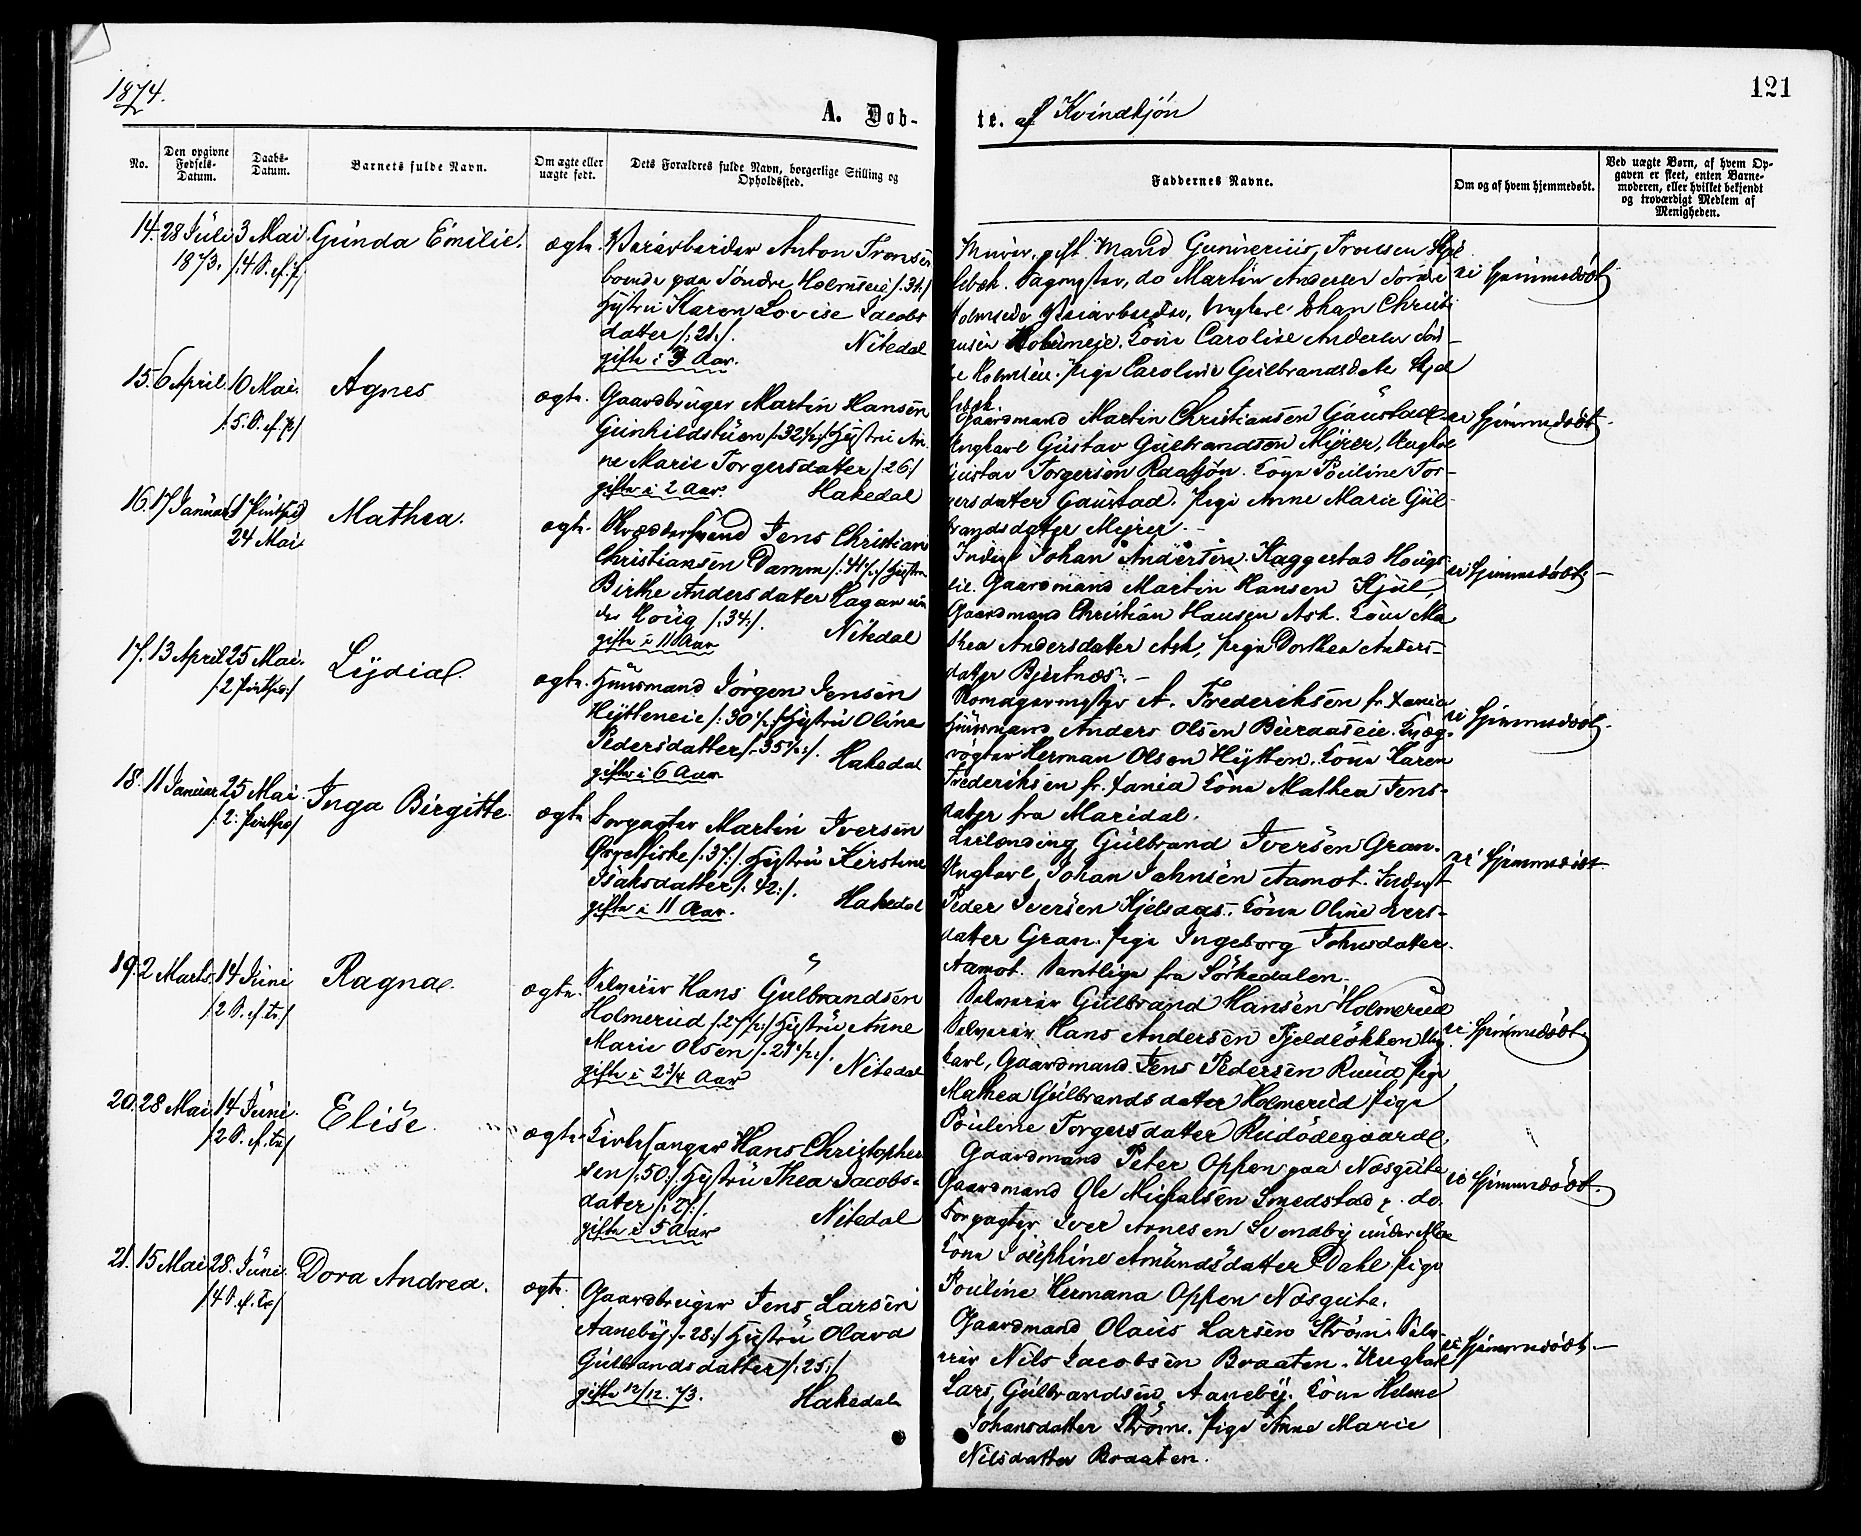 1874.
121
A. Døb-
te. af Kvindkjön
No.
Den opgivne Fødsels-Datum.
Daabs-Datum.
Barnets fulde Navn.
Om ægte eller uægte født.
Dets Forældres fulde Navn, borgerlige Stilling og Opholdssted.
Faddernes Navne.
Om og af hvem hjemmedøbt.
Ved uægte Børn, af hvem Op-
gaven er skeet, enten Barne-
moderen, eller hvilket bekjendt
og troværdigt Medlem af
Menigheden.
14. 28 Juli 1873. 3 Mai /:4 S. ef. p/ Gunda Emilie. ægte.
Anton Tronsen
boende paa Söndre Holmseie /:31:/
Hustru Karen Lovise Jacobs
datter /:21:/. Nitedal
gifte i 3 Aar.
gift Mand Gunnerius Tronsen
do Martin Andersen Söndre
Ungkarl Johan Christi
ansen Holmseie. Kone Caroline Andersen Sönd-
re Holmseie. Pige Caroline Gulbrandsdatter
ei hjemmedöbt.
15. 6 April 10 Mai. /:5. S. ef. p/ Agnes ægte.
Gaardbruger Martin Hansen
Gunhildstuen /:32½:/ Hustru An-
ne Marie Torgersdatter /:26/
gifte i 2 Aar. Hakedal
Gaardmand Martin Christiansen Gaustad.
Ungkarl Gustav Gulbrandsen Myrer, Ungkarl
Gustav Torgersen Raasjön. Kone Pouline Tor-
gersdatter Gaustad. Pige Anne Marie Gul-
brandsdatter Myrer. -
ei hjemmedöbt.
16. 17 Januar 24 Mai Mathea. ægte.
Skrædersvend Jens Christian
Christiansen Damm /:41½:/ Hustru
Birthe Andersdatter Hagan un
der Houg /:34:/. Nitedal
gifte i 11 Aar
Inderst Johan Andersen Haggestad Hougs
eie. Gaardmand Martin Hansen Kjul,
Gaardmand Christian Hansen Ask. Kone Ma
thea Andersdatter Ask, Pige Dorthea Anders-
datter Bjertnæs. -
ei hjemmedöbt -
17. 13 April 25 Mai. /2 Pintsed:/ Lydia. ægte.
Huusmand Jörgen Jensen
Hytteneie /:30½:/ Hustru Oline
Pedersdatter /:35½:/. Hakedal
gifte i 6 Aar
A. Frederiksen fr. Xania
Huusmand Anders Olsen Bueraaseie. Kvæg-
røgter Herman Olsen Hytten. Kone Karen
Frederiksen fr. Xania Kone Mathea Jens-
datter fra Maridal.
ei hjemmedöbt.
18. 11 Januar 25 Mai /:2: Pintsed/ Inga Birgitte. ægte
Forpagter Martin Iversen
/:37:/. Hustru Kirstine
Isaksdatter /:42:/. Hakedal
gifte i 11 Aar.
Leilending Gulbrand Iversen Gran.
Ungkarl Johan Jahnsen Aamot. Inderst
Peder Iversen Kjelsaas. Kone Oline Ivers-
datter Gran. Pige Ingeborg Johnsdatter
Aamot. Samtlige fra Sörkedalen.
ei hjemmedöbt.
19. 2 Marts. 14 Juni /2 S. ef. tr/ Ragna. ægte.
Selveier Hans Gulbrandsen
Holmerud /:27½:/ Hustru Anne
Marie Olsen /:21½:/. Nitedal
gifte i 2 3/4 Aar
Selveier Gulbrand Hansen Holmerud
Selveier Hans Andersen Fjeldlökken Ung
karl, Gaardmand Jens Pedersen Ruud Pige
Mathea Gulbrandsdatter Holmerud Pige
Pouline Torgersdatter Ruidödegaard.
ei hjemmedöbt
20. 28 Mai 14 Juni. /2 S. ef. tr/ Elise. ægte.
Kirkesanger Hans Christopher
sen /:50:/. Hustru Thea Jacobs-
datter /:27:/. Nitedal
gifte i 5 Aar
Gaardmand Peter Oppen paa Næsgute
Gaardmand Ole Michalsen Smedstad p. do.
Forpagter Iver Arnesen Svendby under Mo
Kone Josephine Amundsdatter Dahl Pige
Pouline Hermana Oppen Næsgute.
ei hjemmedöbt.
21. 15 Mai 28. Juni. /4 S. ef. Tr/ Dora Andrea. ægte.
Gaardbruger Jens Larsen
Aaneby /:28:/ Hustru Olava
Gulbrandsdatter /:25:/
gifte 12/12. 73. Hakedal
Gaardmand Olaus Larsen Ström. Selv-
eier Nils Jacobsen Braaten. Ungkarl
Lars Gulbrandsen Aaneby. Kone Helene
Johansdatter Ström. Pige Anne Marie
Nilsdatter Braaten.
ei hjemmedöbt. -